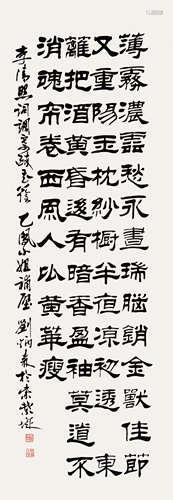 薄霧濃雲愁永晝瑞腦銷金獸佳節
又重陽玉枕紗櫥半夜涼初透東
籬把酒黃昏後有暗香盈袖莫道不
消魂帘卷西風人比黃華瘦
李清照詞調寄醉 鳳小姐補壁 劉炳森於京